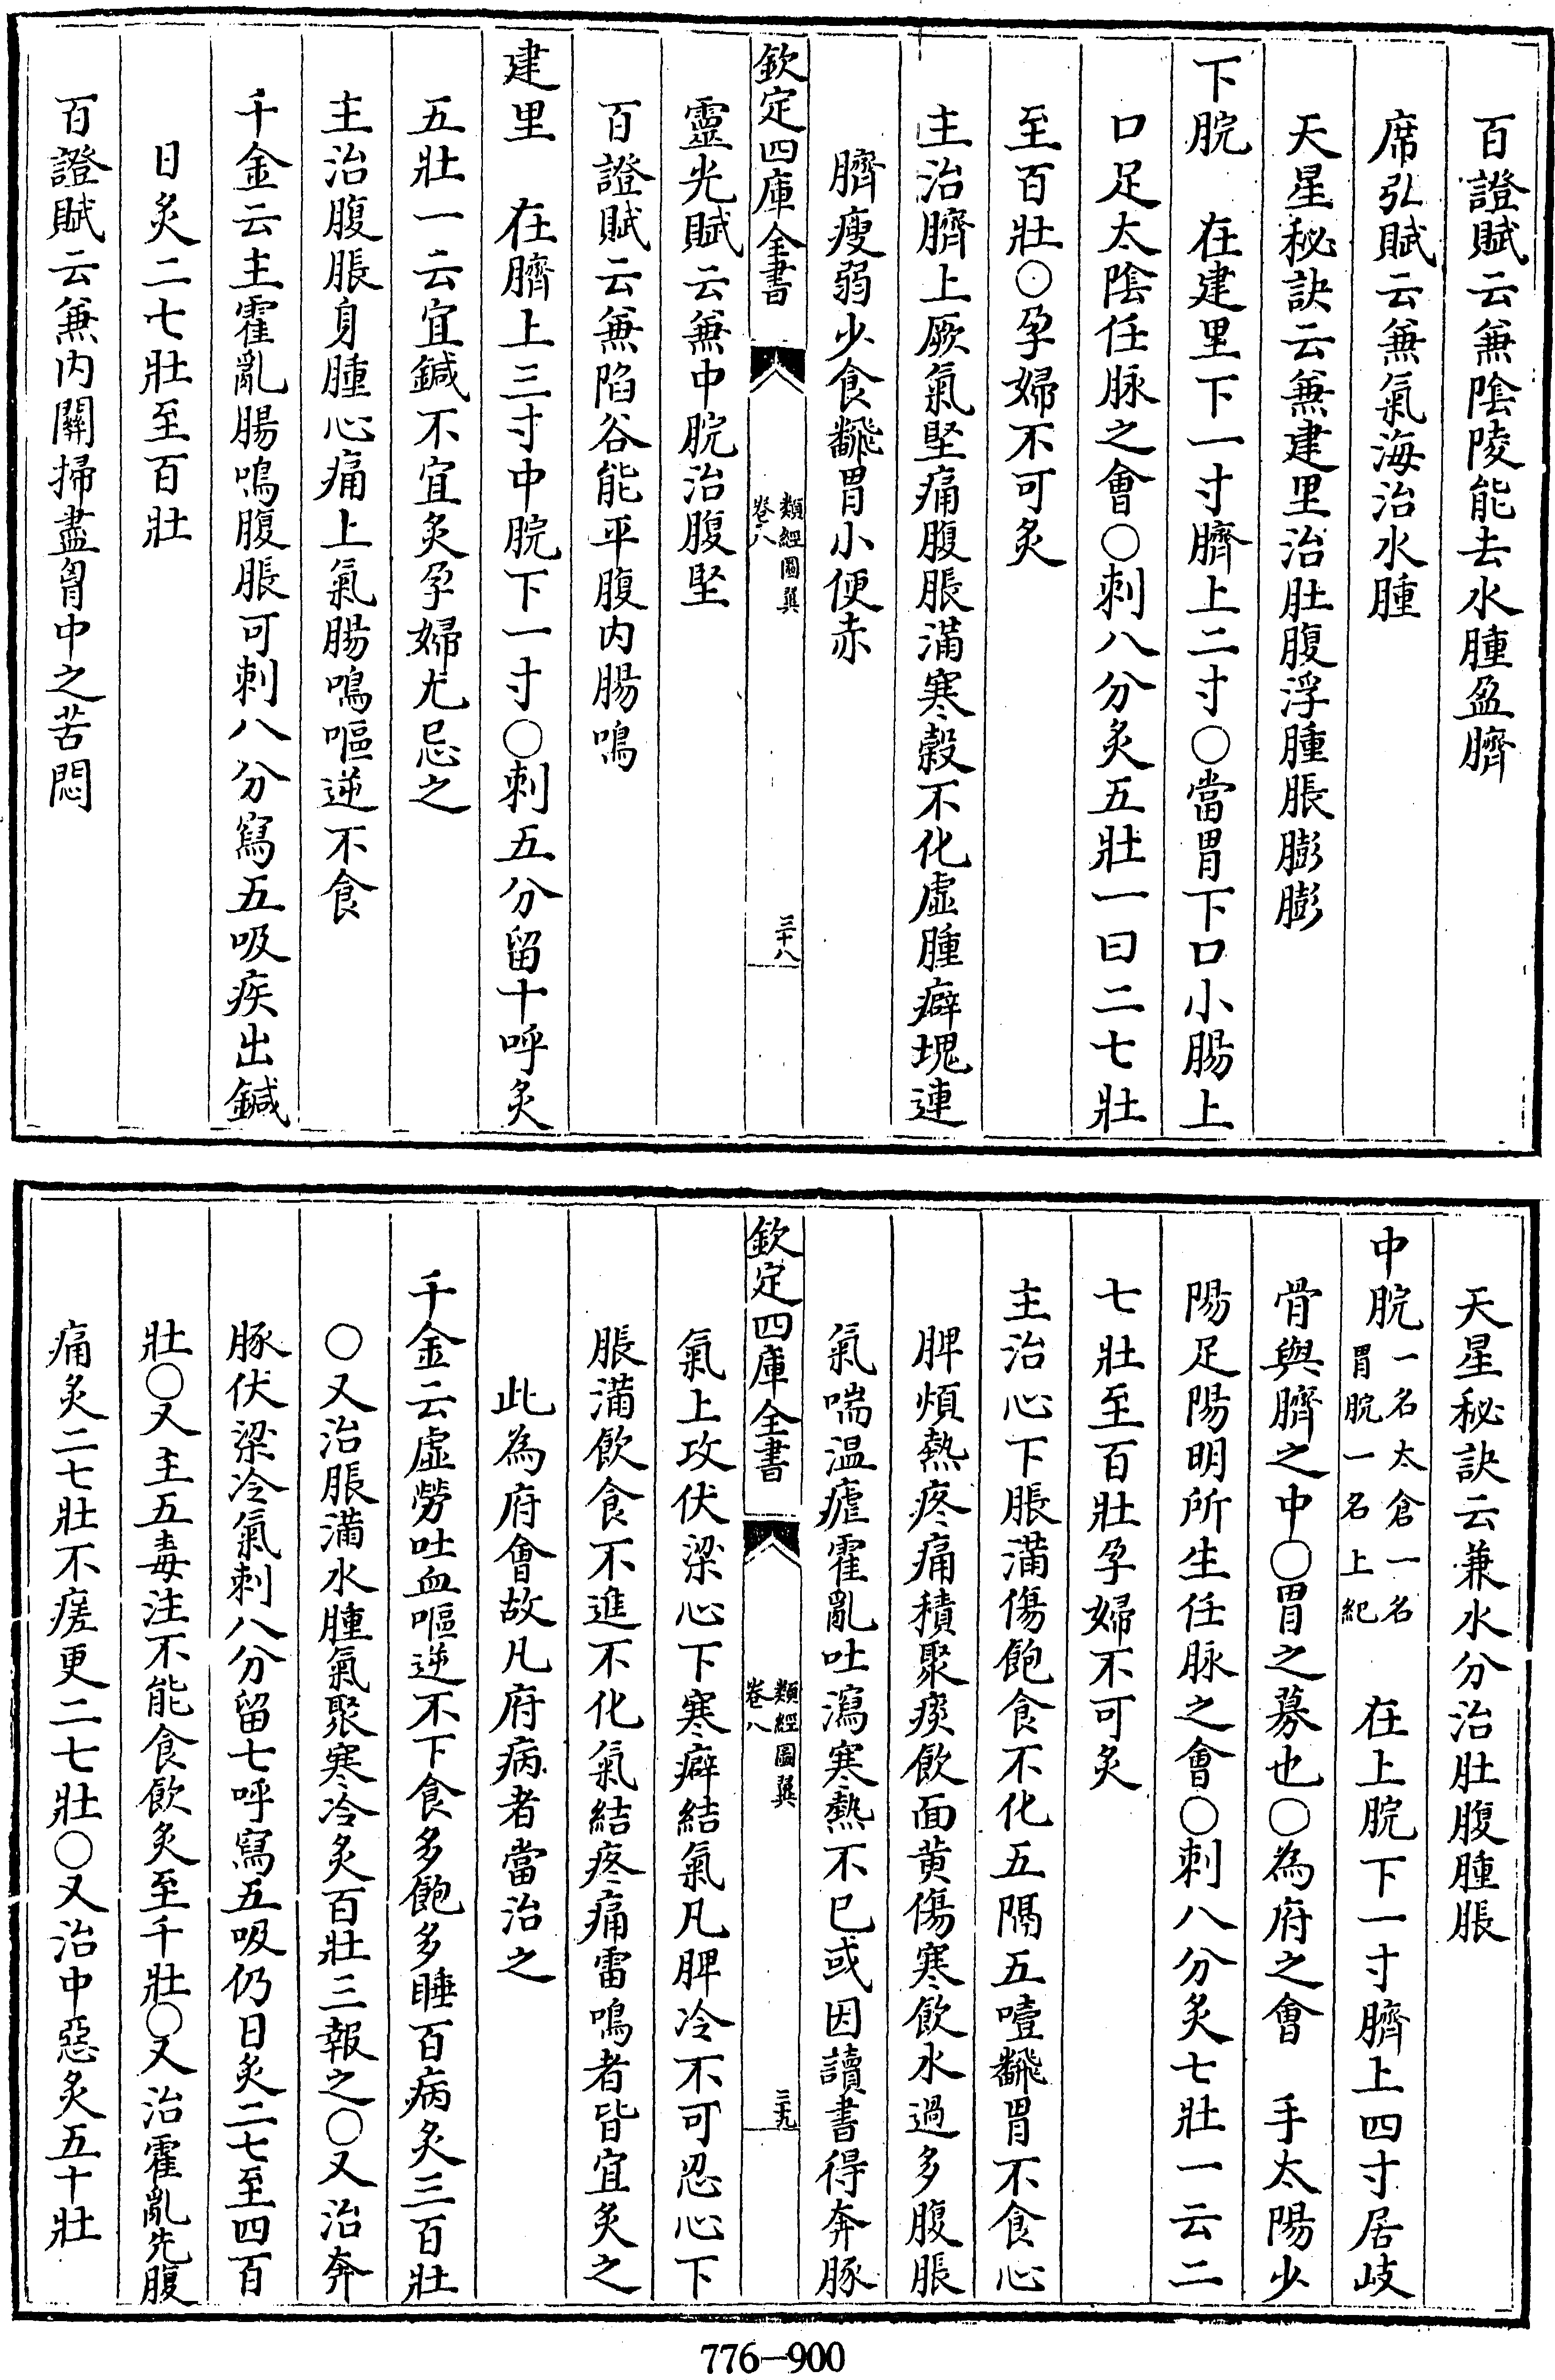 百證賦云兼陰陵能去水腫盈臍
席弘賦云兼氣海治水腫
天星秘訣云兼建里治肚腹浮腫脹膨膨
下脘　在建里下一寸臍上二寸○當胃下口小腸上
口足太陰任脉之會○刺八分灸五壯一曰二七壯
至百壯○孕婦不可灸
主治臍上厥氣堅痛腹脹滿寒穀不化虛腫癖塊連
臍瘦弱少食飜胃小便赤
欽定四庫全書　類經圖翼　卷八　三十八
靈光賦云兼中脘治腹堅
百證賦云兼陷谷能平腹内腸鳴
建里　在臍上三寸中脘下一寸○刺五分留十呼灸
五壯一云宜鍼不宜灸孕婦尤忌之
主治腹脹身腫心痛上氣腸鳴嘔逆不食
千金云主霍亂腸鳴腹脹可刺八分寫五吸疾出鍼
日灸二七壯至百壯
百證賦云兼内關掃盡胷中之苦悶
天星秘訣云兼水分治肚腹腫脹
中脘一名太倉一名胃脘一名上紀　在上脘下一寸臍上四寸居岐
骨與臍之中○胃之募也○為府之會　手太陽少
陽足陽明所生任脉之會○刺八分灸七壯一云二
七壯至百壯孕婦不可灸
主治心下脹滿傷飽食不化五隔五噎飜胃不食心
脾煩熱疼痛積聚痰飲面黄傷寒飲水過多腹脹
氣喘温瘧霍亂吐瀉寒熱不已或因讀書得奔豚
欽定四庫全書　類經圖翼　卷八　三十九
氣上攻伏梁心下寒癖結氣凡脾冷不可忍心下
脹滿飲食不進不化氣結疼痛雷鳴者皆宜灸之
此為府會故凡府病者當治之
千金云虛勞吐血嘔逆不下食多飽多睡百病灸三百壯
○又治脹滿水腫氣聚寒冷灸百壯三報之○又治奔
豚伏梁冷氣刺八分留七呼寫五吸仍日灸二七至四百
壯○又主五毒注不能食飲灸至千壯○又治霍亂先腹
痛灸二七壯不瘥更二七壯○又治中惡灸五十壯
776-900